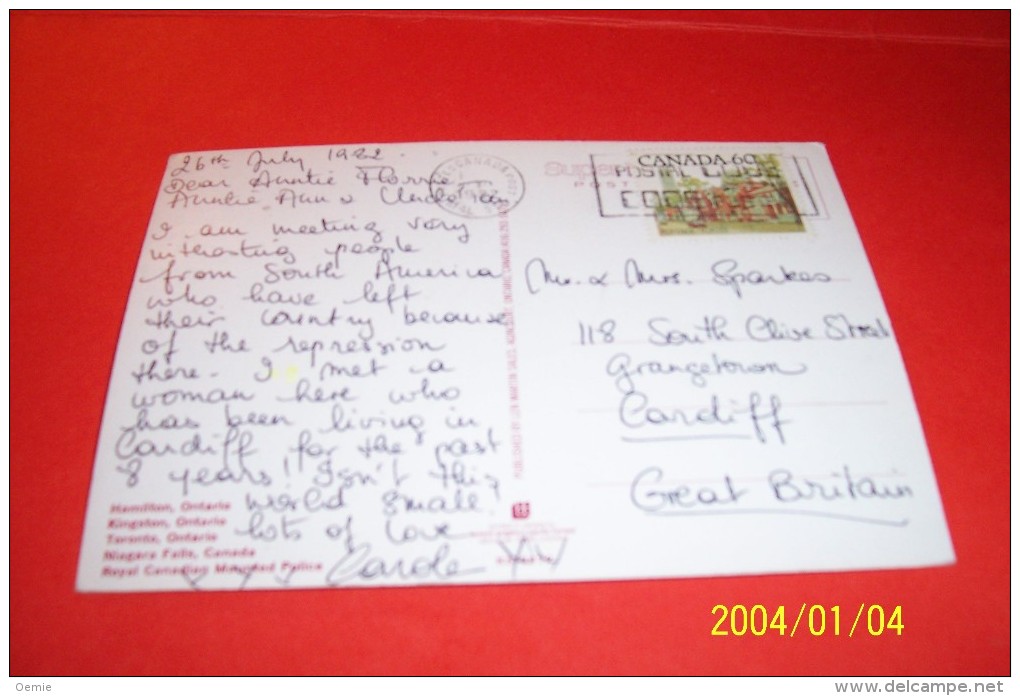 26th July 1982.
Dear Auntie Florrie
Auntie Ann & Uncle
I am meeting very
interesting people
from South America
who have left
their country because
of the repression
there. I met a
woman here who
has been living in
Cardiff for the past
8 years! Isn't this
world small!
lots of love
Carole
Hamilton, Ontario
Kingston, Ontario
Toronto, Ontario
Niagara Falls, Canada
Royal Canadian Mounted Police
CANADA 60
POSTAL CODE
POST
Mr. & Mrs. Sparkes
118 South Clive Street
Grangetown
Cardiff
Great Britain
2004/01/04
Oemie
www.delcampe.net